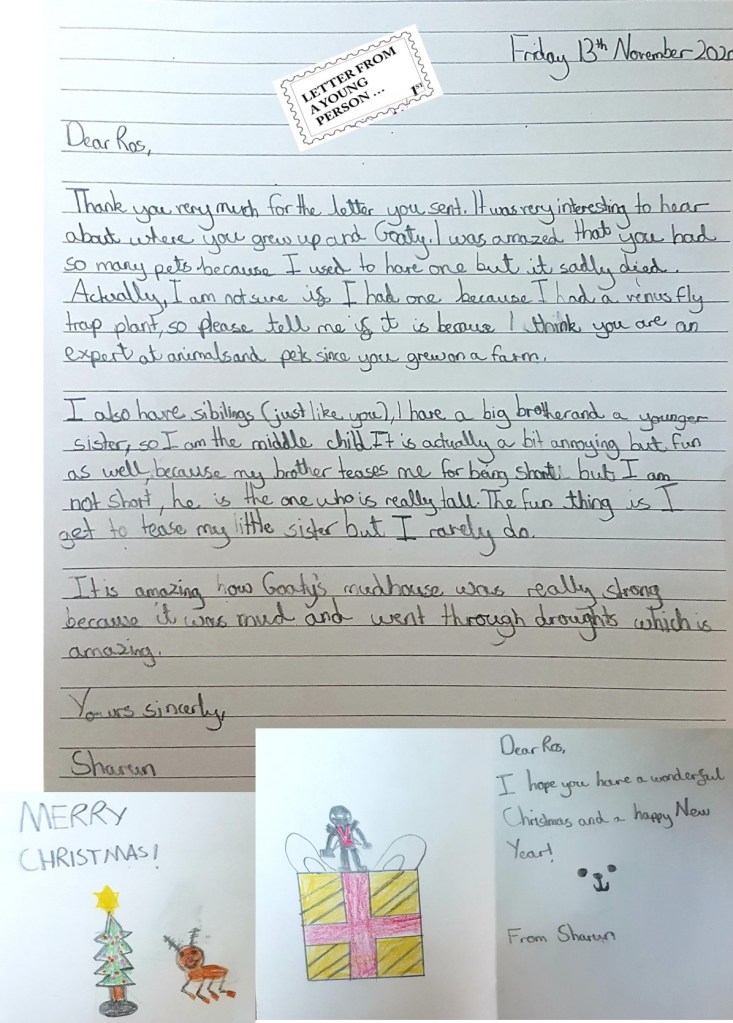 Friday 13th November 2020
LETTER FROM
A YOUNG
PERSON...
1st
Dear Ros,
Thank you very much for the letter you sent. It was very interesting to hear
about where you grew up and Goaty. I was amazed that you had
so many pets because I used to have one but it sadly died.
Actually, I am not sure if I had one because I had a venus fly
trap plant, so please tell me if it is because I think you are an
expert at animals and pets since you grew on a farm.
I also have sibilings (just like you), I have a big brother and a younger
sister, so I am the middle child It is actually a bit annoying but fun
as well, because my brother teases me for being short but I am
not short, he is the one who is really tall. The fun thing is I
get to tease my little sister but I rarely do.
It is amazing how Goaty's mudhouse was really strong
because it was mud and went through droughts which is
amazing.
Yours sincerly,
Sharun
MERRY
CHRISTMAS!
Dear Ros,
I hope you have a wonderful
Christmas and a happy New
Year!
From Sharun